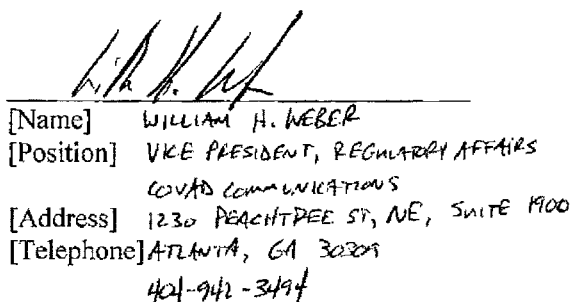 [Name] WILLIAM H. WEBER
[Position] VICE PRESIDENT, REGULATORY AFFAIRS
COVAD COMMUNICATIONS
[Address] 1230 PEACHTREE ST, NE, SUITE 1900
[Telephone] ATLANTA, GA 30309
404-942-3494